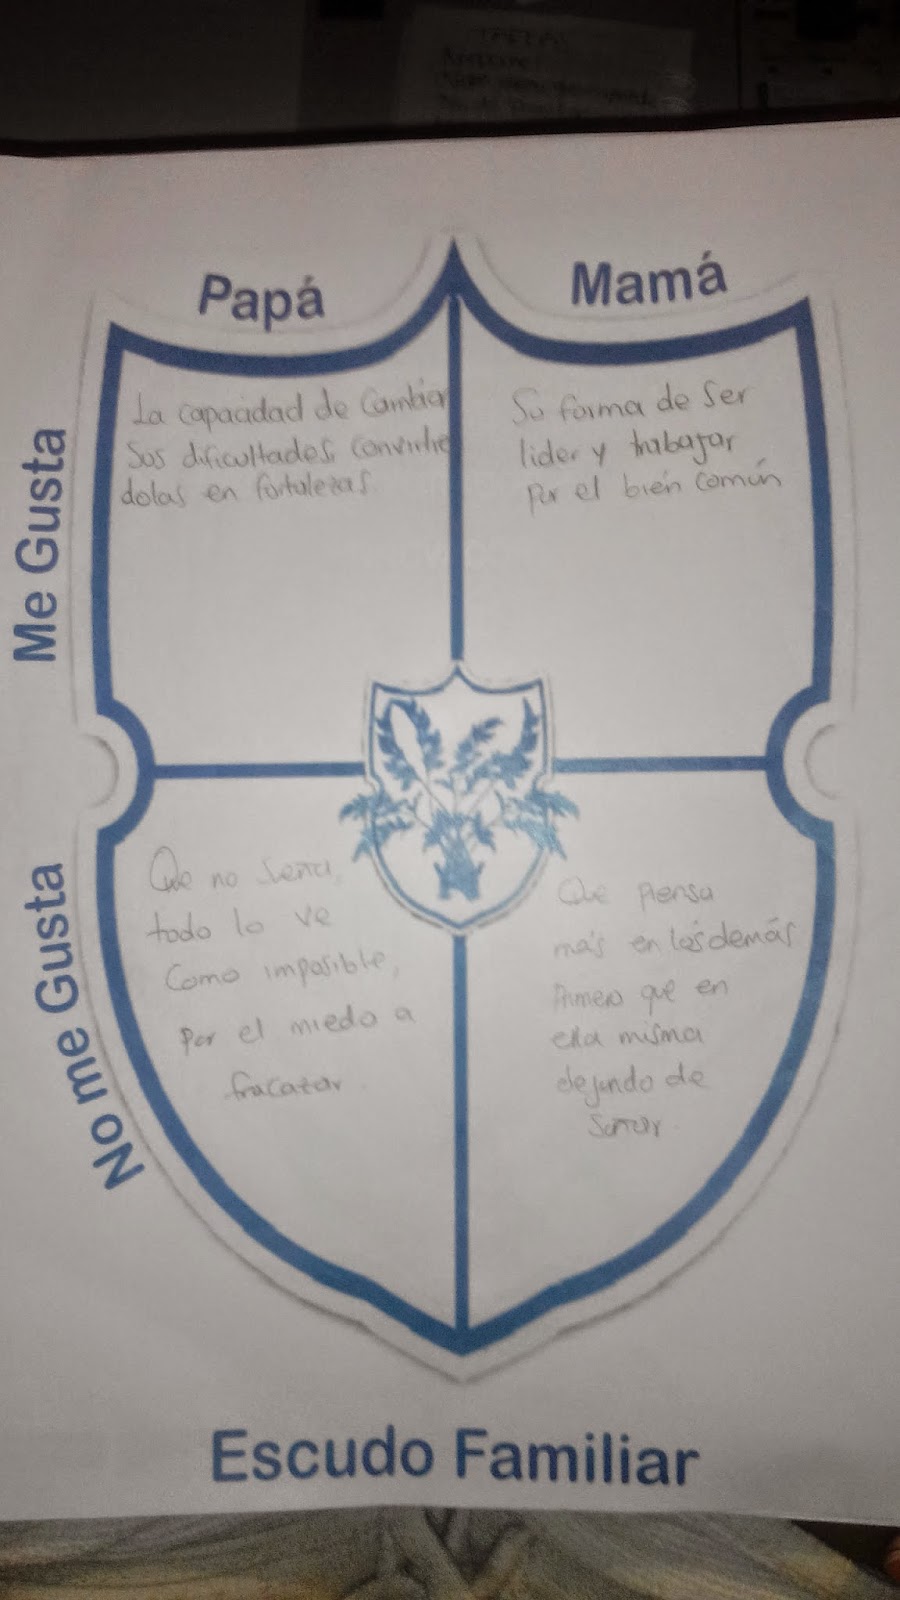 Papá
Mamá
Me Gusta
La capacidad de Cambiar
Sus dificultades, convirtie
dolas en fortalezas.
Su forma de Ser
lider y trabajar
por el bién común
No me Gusta
Que no
todo lo ve
Como imposible,
Por el miedo a
fracazar.
Que piensa
más en los demás
Primero que en
ella misma
dejando de
Escudo Familiar